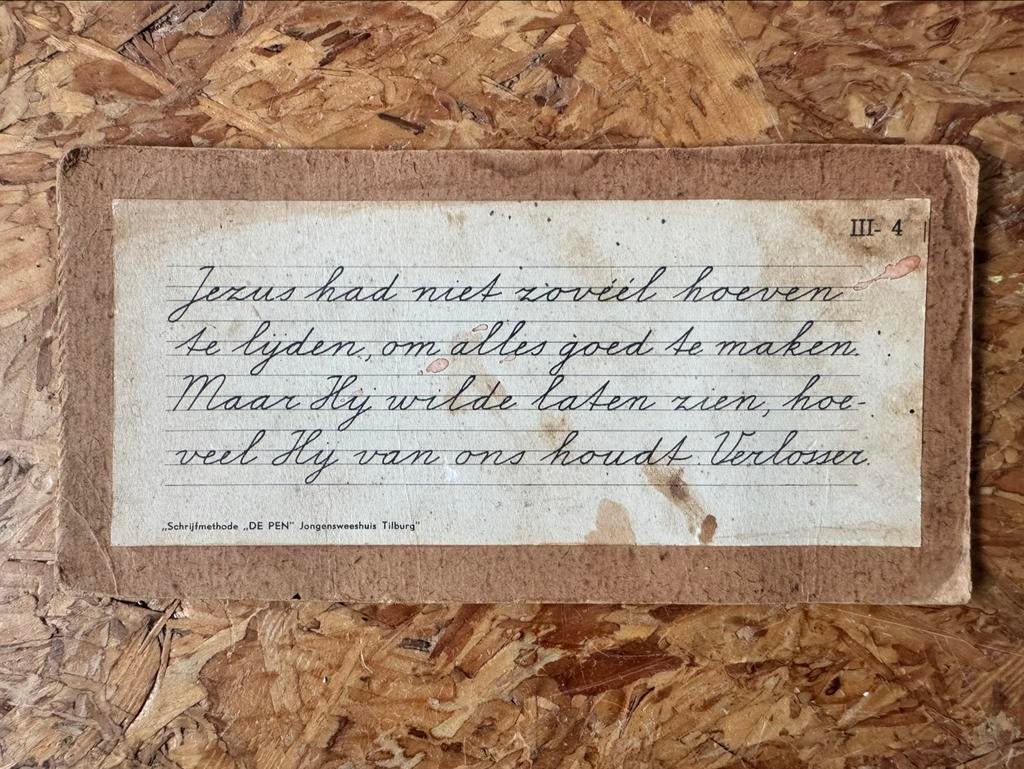 III- 4
Jezus had niet zóvéél hoeven
te lijden, om alles goed te maken.
Maar Hij wilde laten zien, hoe-
veel Hij van ons houdt. Verlosser.
„Schrijfmethode „DE PEN” Jongensweeshuis Tilburg”